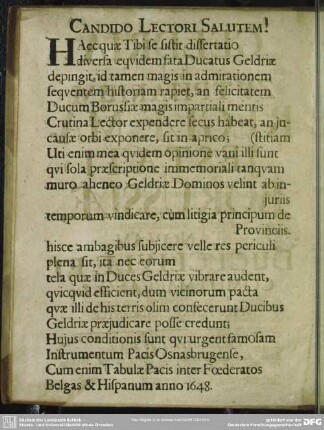 CANDIDO LECTORI SALUTEM!
HAec quæ Tibi se sistit dissertatio
diversa eqvidem fata Ducatus Geldriæ
depingit, id tamen magis in admirationem
seqventem historiam rapiet, an felicitatem
Ducum Borussiæ magis impartiali mentis
Crutina Lector expendere secus habeat, an ju-
causæ orbi exponere, sit in aprico; (stitiam
Uti enim mea qvidem opinione vani illi sunt
qvi sola præscriptione immemoriali tanqvam
muro aheneo Geldriæ Dominos velint ab in-
juriis
temporum vindicare, cùm litigia principum de
Provinciis.
hisce ambagibus subjicere velle res periculi
plena sit, ita nec eorum
tela quæ in Duces Geldriæ vibrare audent,
qvicqvid efficient, dum vicinorum pacta
qvæ illi de his terris olim consecerunt Ducibus
Geldriæ præjudicare posse credunt;
Hujus conditionis sunt qvi urgent famosam
Instrumentum Pacis Osnabrugense,
Cum enim Tabulæ Pacis inter Fœderatos
Belgas & Hispanum anno 1648.